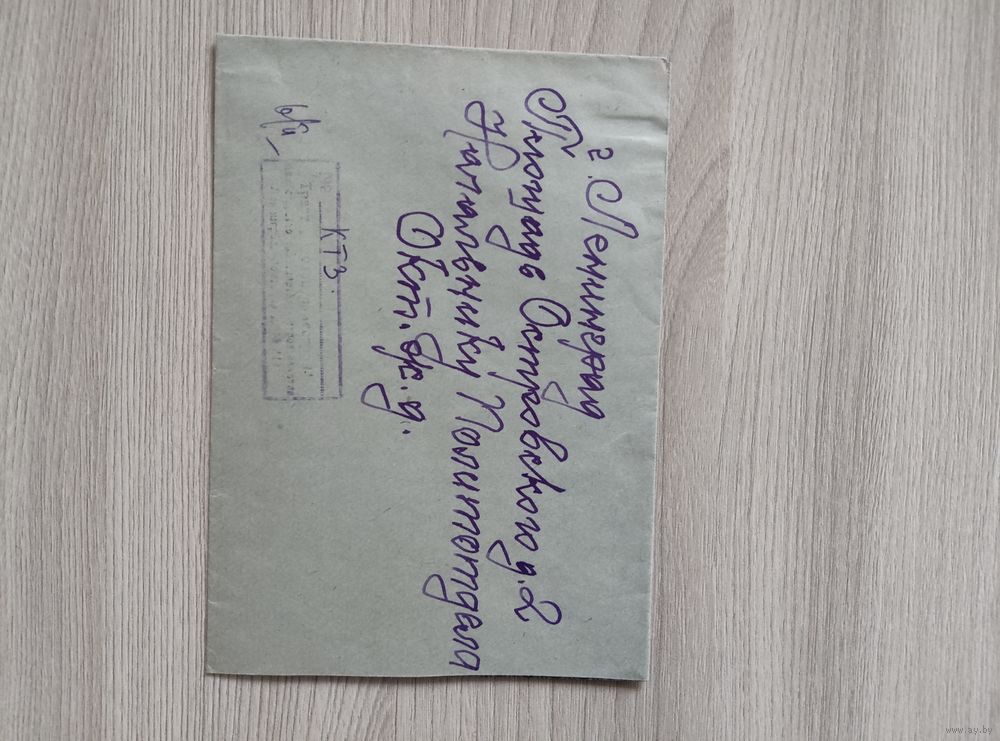 г. Ленинград
Площадь Островского д. 2
Начальнику Политотдела
Окт. ж. д.
КТЗ
www.ay.by